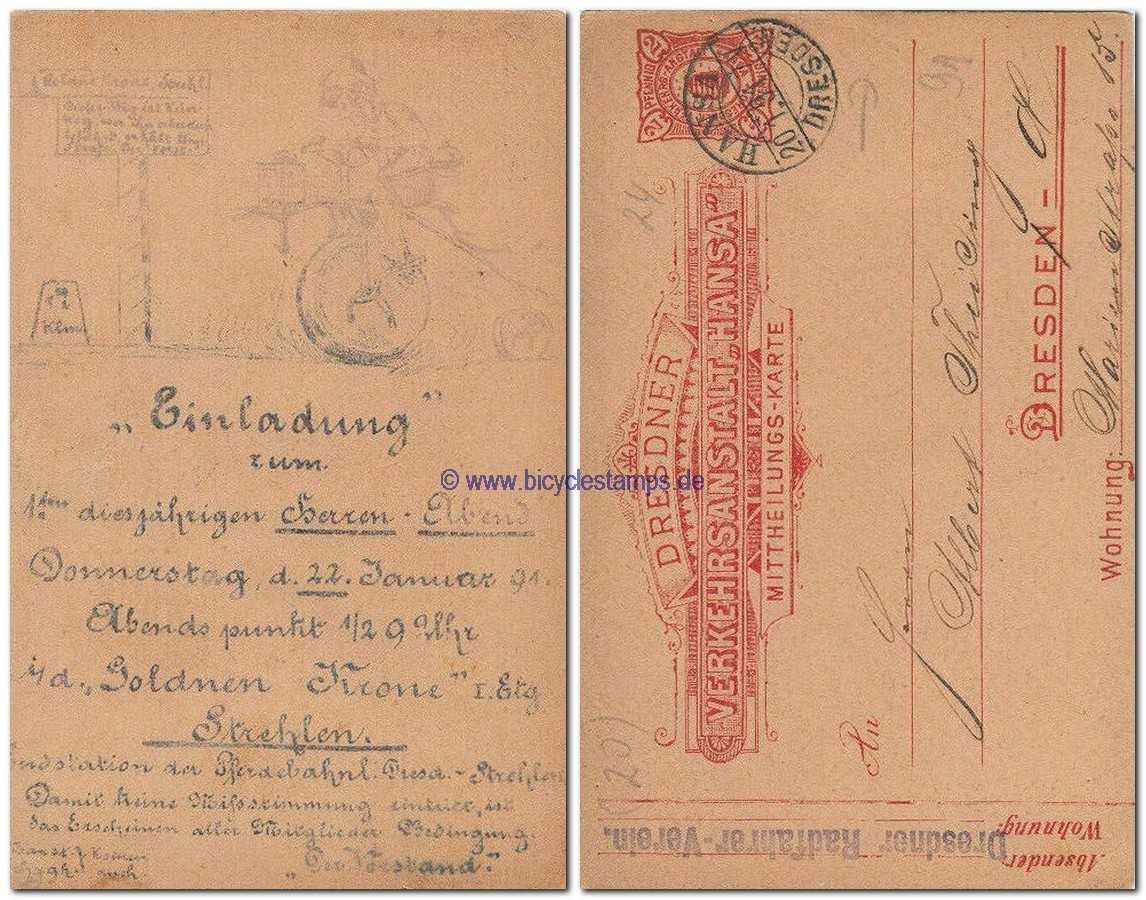 Dieser Weg ist
der
12
Klm
„Einladung"
zum
1ten diesjährigen Herren-Abend
Donnerstag, d. 22. Januar 91.
Abends punkt 1/2 9 Uhr
i/d. „Goldnen Krone" I. Etg
Strehlen.
ndstation der Pferdebahnl. Dresd.-Strehlen
Damit keine Missstimmung eintritt, ist
das Erscheinen aller Mitglieder Bedingung.
„Der Vorstand."
auch.
© www.bicyclestamps.de
2½ PFENNIG
DRESDEN
20.1.
HANSA
24
DRESDNER
VERKEHRSANSTALT „HANSA"
MITTHEILUNGS-KARTE
An Herrn
Albert
DRESDEN-A
Wohnung: Marienstraße 15.
Absender
Wohnung:
Dresdner Radfahrer-Verein.
(20)